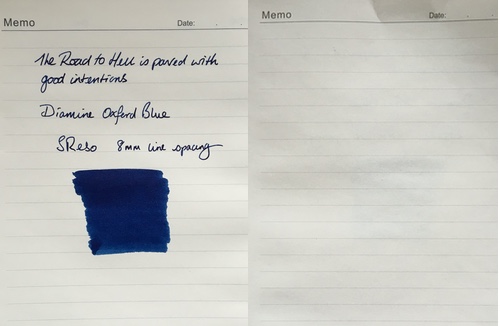 Memo
Date: . .
The Road to Hell is paved with
good intentions
Diamine Oxford Blue
8mm line spacing
Memo
Date: . .